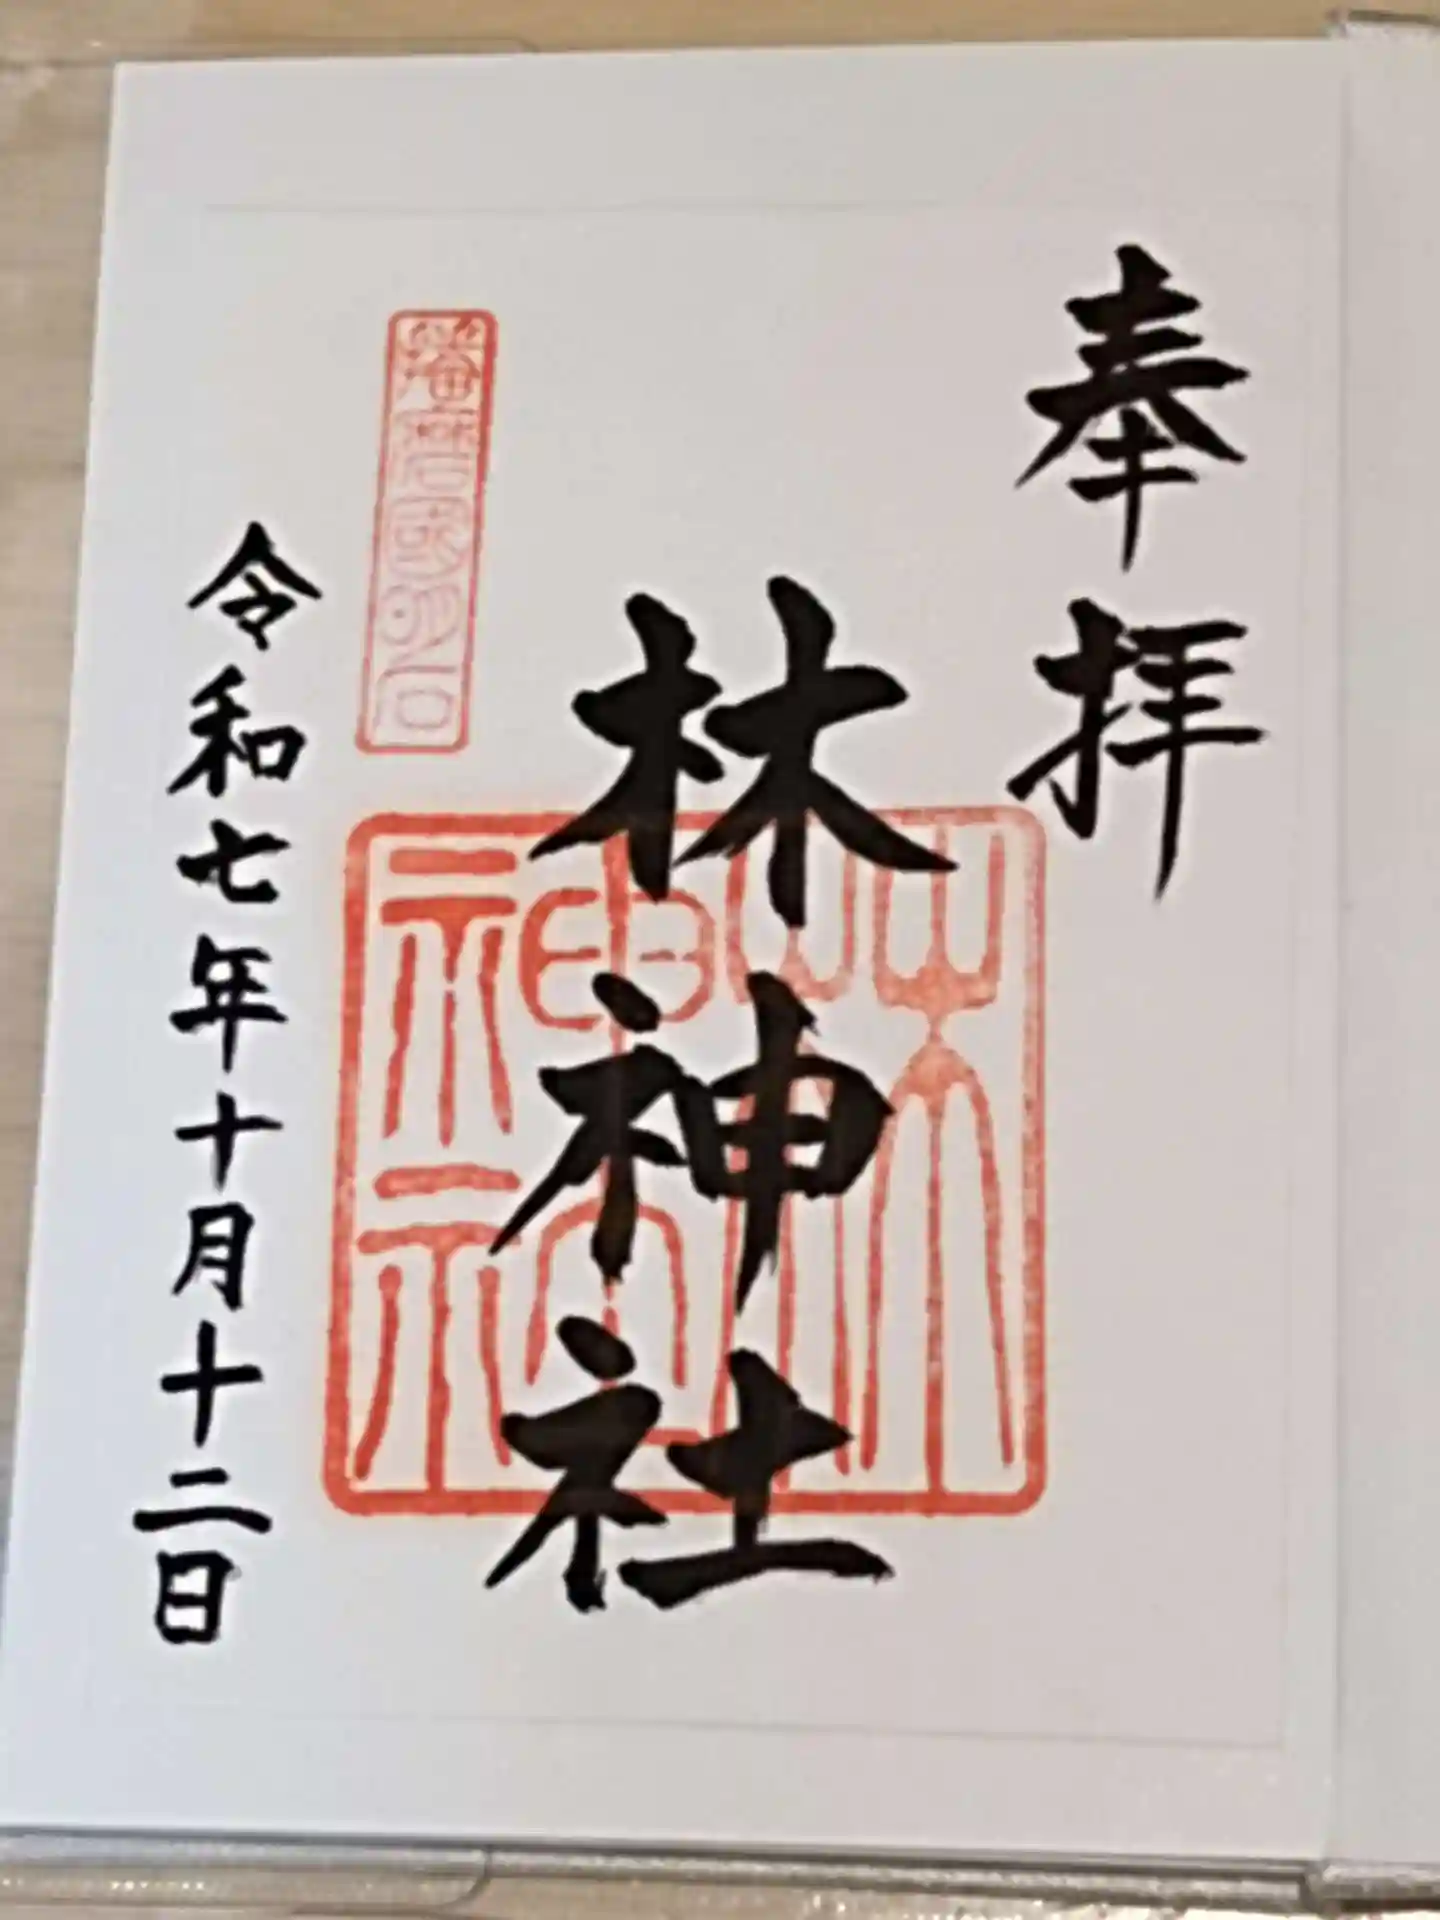 奉拝
林神社
林神社
播磨国明石
令和七年十月十二日